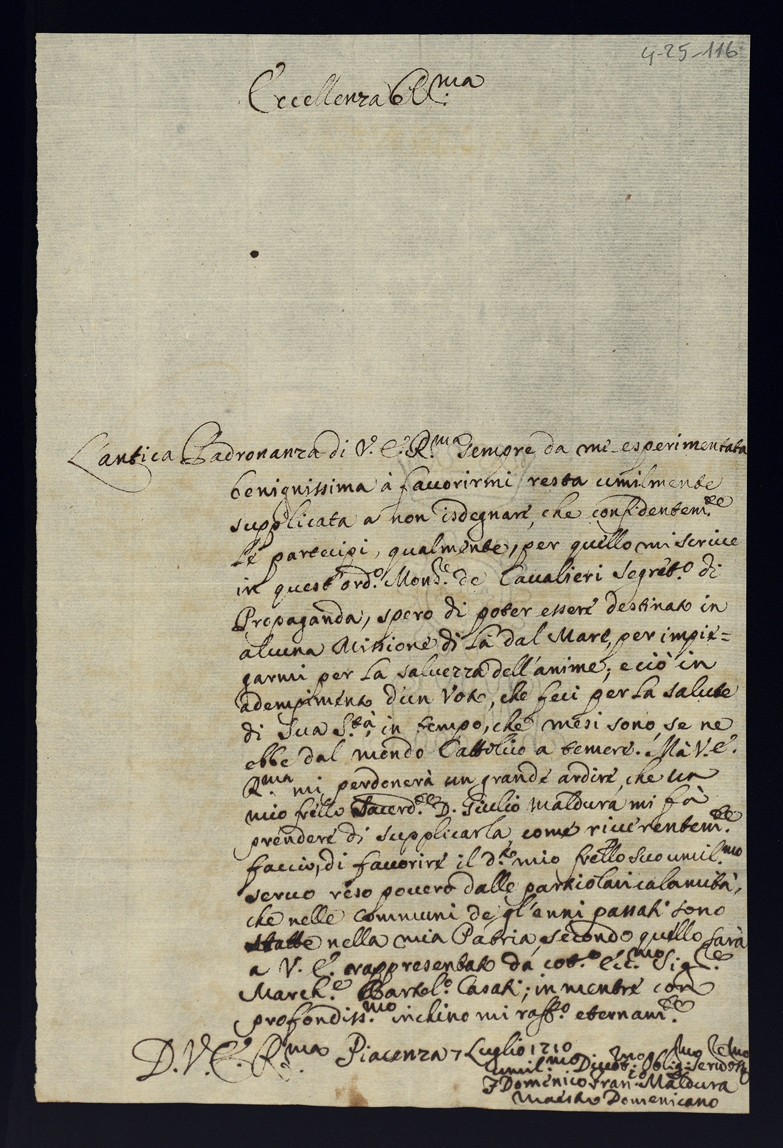 4-25-116
Eccellenza R.ma
L'antica Padronanza di V. E. R.ma sempre da me esperimentata
benignissima à fauorirmi, resta umilmente
supplicata a non isdegnare, che confidentem.te
Le partecipi, qualmente, per quello mi scriue
in quest'ord.o Mons.re de Caualieri Segret.o di
Propaganda, spero di poter essere destinato in
alcuna Missione di là dal Mare, per impie=
garmi per la saluezza dell'anime; e ciò in
adempimento d'un Voto, che feci per la salute
di Sua S.tà, in tempo, che mesi sono, se ne
ebbe dal mondo Cattolico a temere. Mà V. E.
R.ma mi perdonerà un grande ardire, che un
mio frello Sacerd.te D. Giulio Maldura mi fà
prendere di supplicarla come riuerentem.te
faccio, di fauorire il d.to mio frello suo umil.mo
seruo reso pouero dalle particolari calamità,
che nelle communi de gl'enni passati sono
state nella mia Patria, secondo quello sarà
a V. E. rappresentato da cot.o Ecc.mo Sig.re
March.e Bartol.o Casati; in mentre con
profondiss.mo inchino mi raff.o eternam.te
D. V. E. R.ma Piacenza 7 Luglio 1710
umil.mo Diuot.mo Oblig.mo Seruo
F Domenico Fran. Maldura
Maestro Domenicano